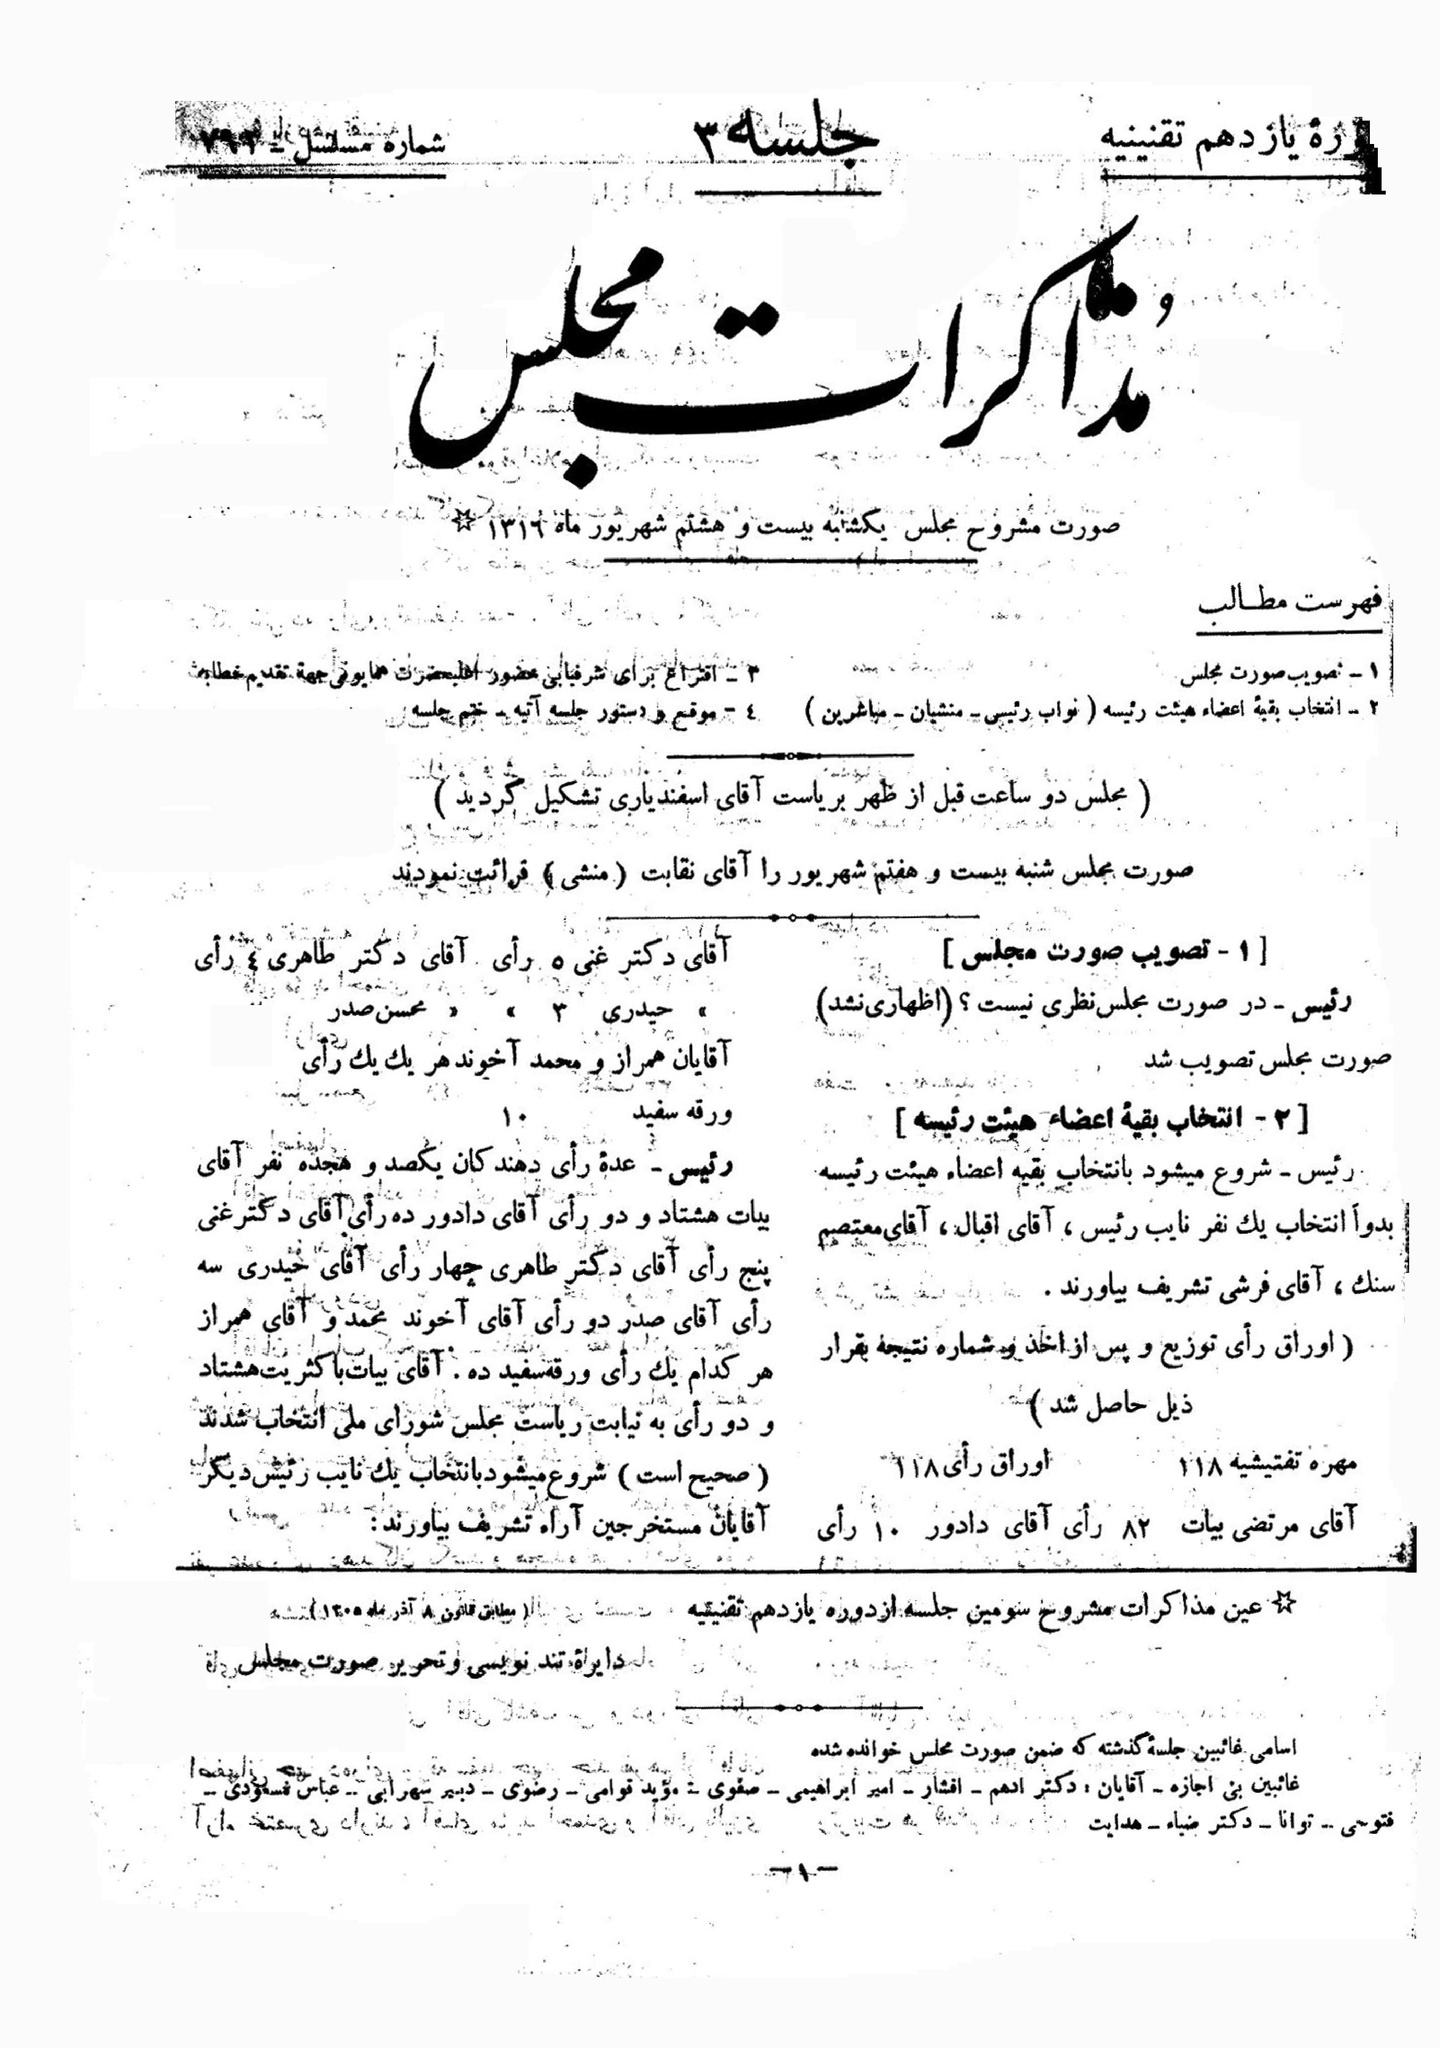 دورهٔ یازدهم تقنینیه
جلسه ۳
شماره مسلسل -
مذاکرات مجلس
صورت مشروح مجلس یکشنبه بیست و هشتم شهریور ماه ۱۳۱۶ ☆
فهرست مطالب
۱ - تصویب صورت مجلس
۲ - انتخاب بقیهٔ اعضاء هیئت رئیسه ( نواب رئیس - منشیان - مباشرین )
۳ - اقتراع برای شرفیابی حضور اعلیحضرت همایونی جهة تقدیم خطابه
۴ - موقع و دستور جلسه آتیه - ختم جلسه
( مجلس دو ساعت قبل از ظهر بریاست آقای اسفندیاری تشکیل گردید )
صورت مجلس شنبه بیست و هفتم شهریور را آقای نقابت ( منشی ) قرائت نمودند
[ ۱ - تصویب صورت مجلس ]
رئیس - در صورت مجلس نظری نیست ؟ (اظهاری نشد)
صورت مجلس تصویب شد
[ ۲ - انتخاب بقیهٔ اعضاء هیئت رئیسه ]
رئیس - شروع میشود بانتخاب بقیه اعضاء هیئت رئیسه
بدواً انتخاب یك نفر نایب رئیس ، آقای اقبال ، آقای معتصم
سنك ، آقای فرشی تشریف بیاورند .
( اوراق رأی توزیع و پس از اخذ و شماره نتیجه بقرار
ذیل حاصل شد )
مهره تفتیشیه ۱۱۸ اوراق رأی ۱۱۸
آقای مرتضی بیات ۸۲ رأی آقای دادور ۱۰ رأی
آقای دکتر غنی ۵ رأی آقای دکتر طاهری ٤ رأی
» حیدری ۳ » « محسن صدر
آقایان همراز و محمد آخوند هر یك یك رأی
ورقه سفید ۱۰
رئیس - عدهٔ رأی دهندکان یکصد و هجده نفر آقای
بیات هشتاد و دو رأی آقای دادور ده رأی آقای دکتر غنی
پنج رأی آقای دکتر طاهری چهار رأی آقای حیدری سه
رأی آقای صدر دو رأی آقای آخوند محمد و آقای همراز
هر کدام یك رأی ورقه سفید ده . آقای بیات باکثریت هشتاد
و دو رأی به نیابت ریاست مجلس شورای ملی انتخاب شدند
( صحیح است ) شروع میشود بانتخاب یك نایب رئیس دیگر
آقایان مستخرجین آراء تشریف بیاورند :
☆ عین مذاکرات مشروح سومین جلسه از دوره یازدهم تقنینیه
( مطابق قانون ۸ آذر ماه ۱۳۰۵ )
دایرهٔ تند نویسی و تحریر صورت مجلس
اسامی غائبین جلسهٔ گذشته که ضمن صورت مجلس خوانده شده
غائبین بی اجازه - آقایان : دکتر ادهم - افشار - امیر ابراهیمی - صفوی - مؤید قوامی - رضوی - دبیر سهرابی - عباس مسعودی -
فتوحی - توانا - دکتر ضیاء - هدایت
- ۱ -